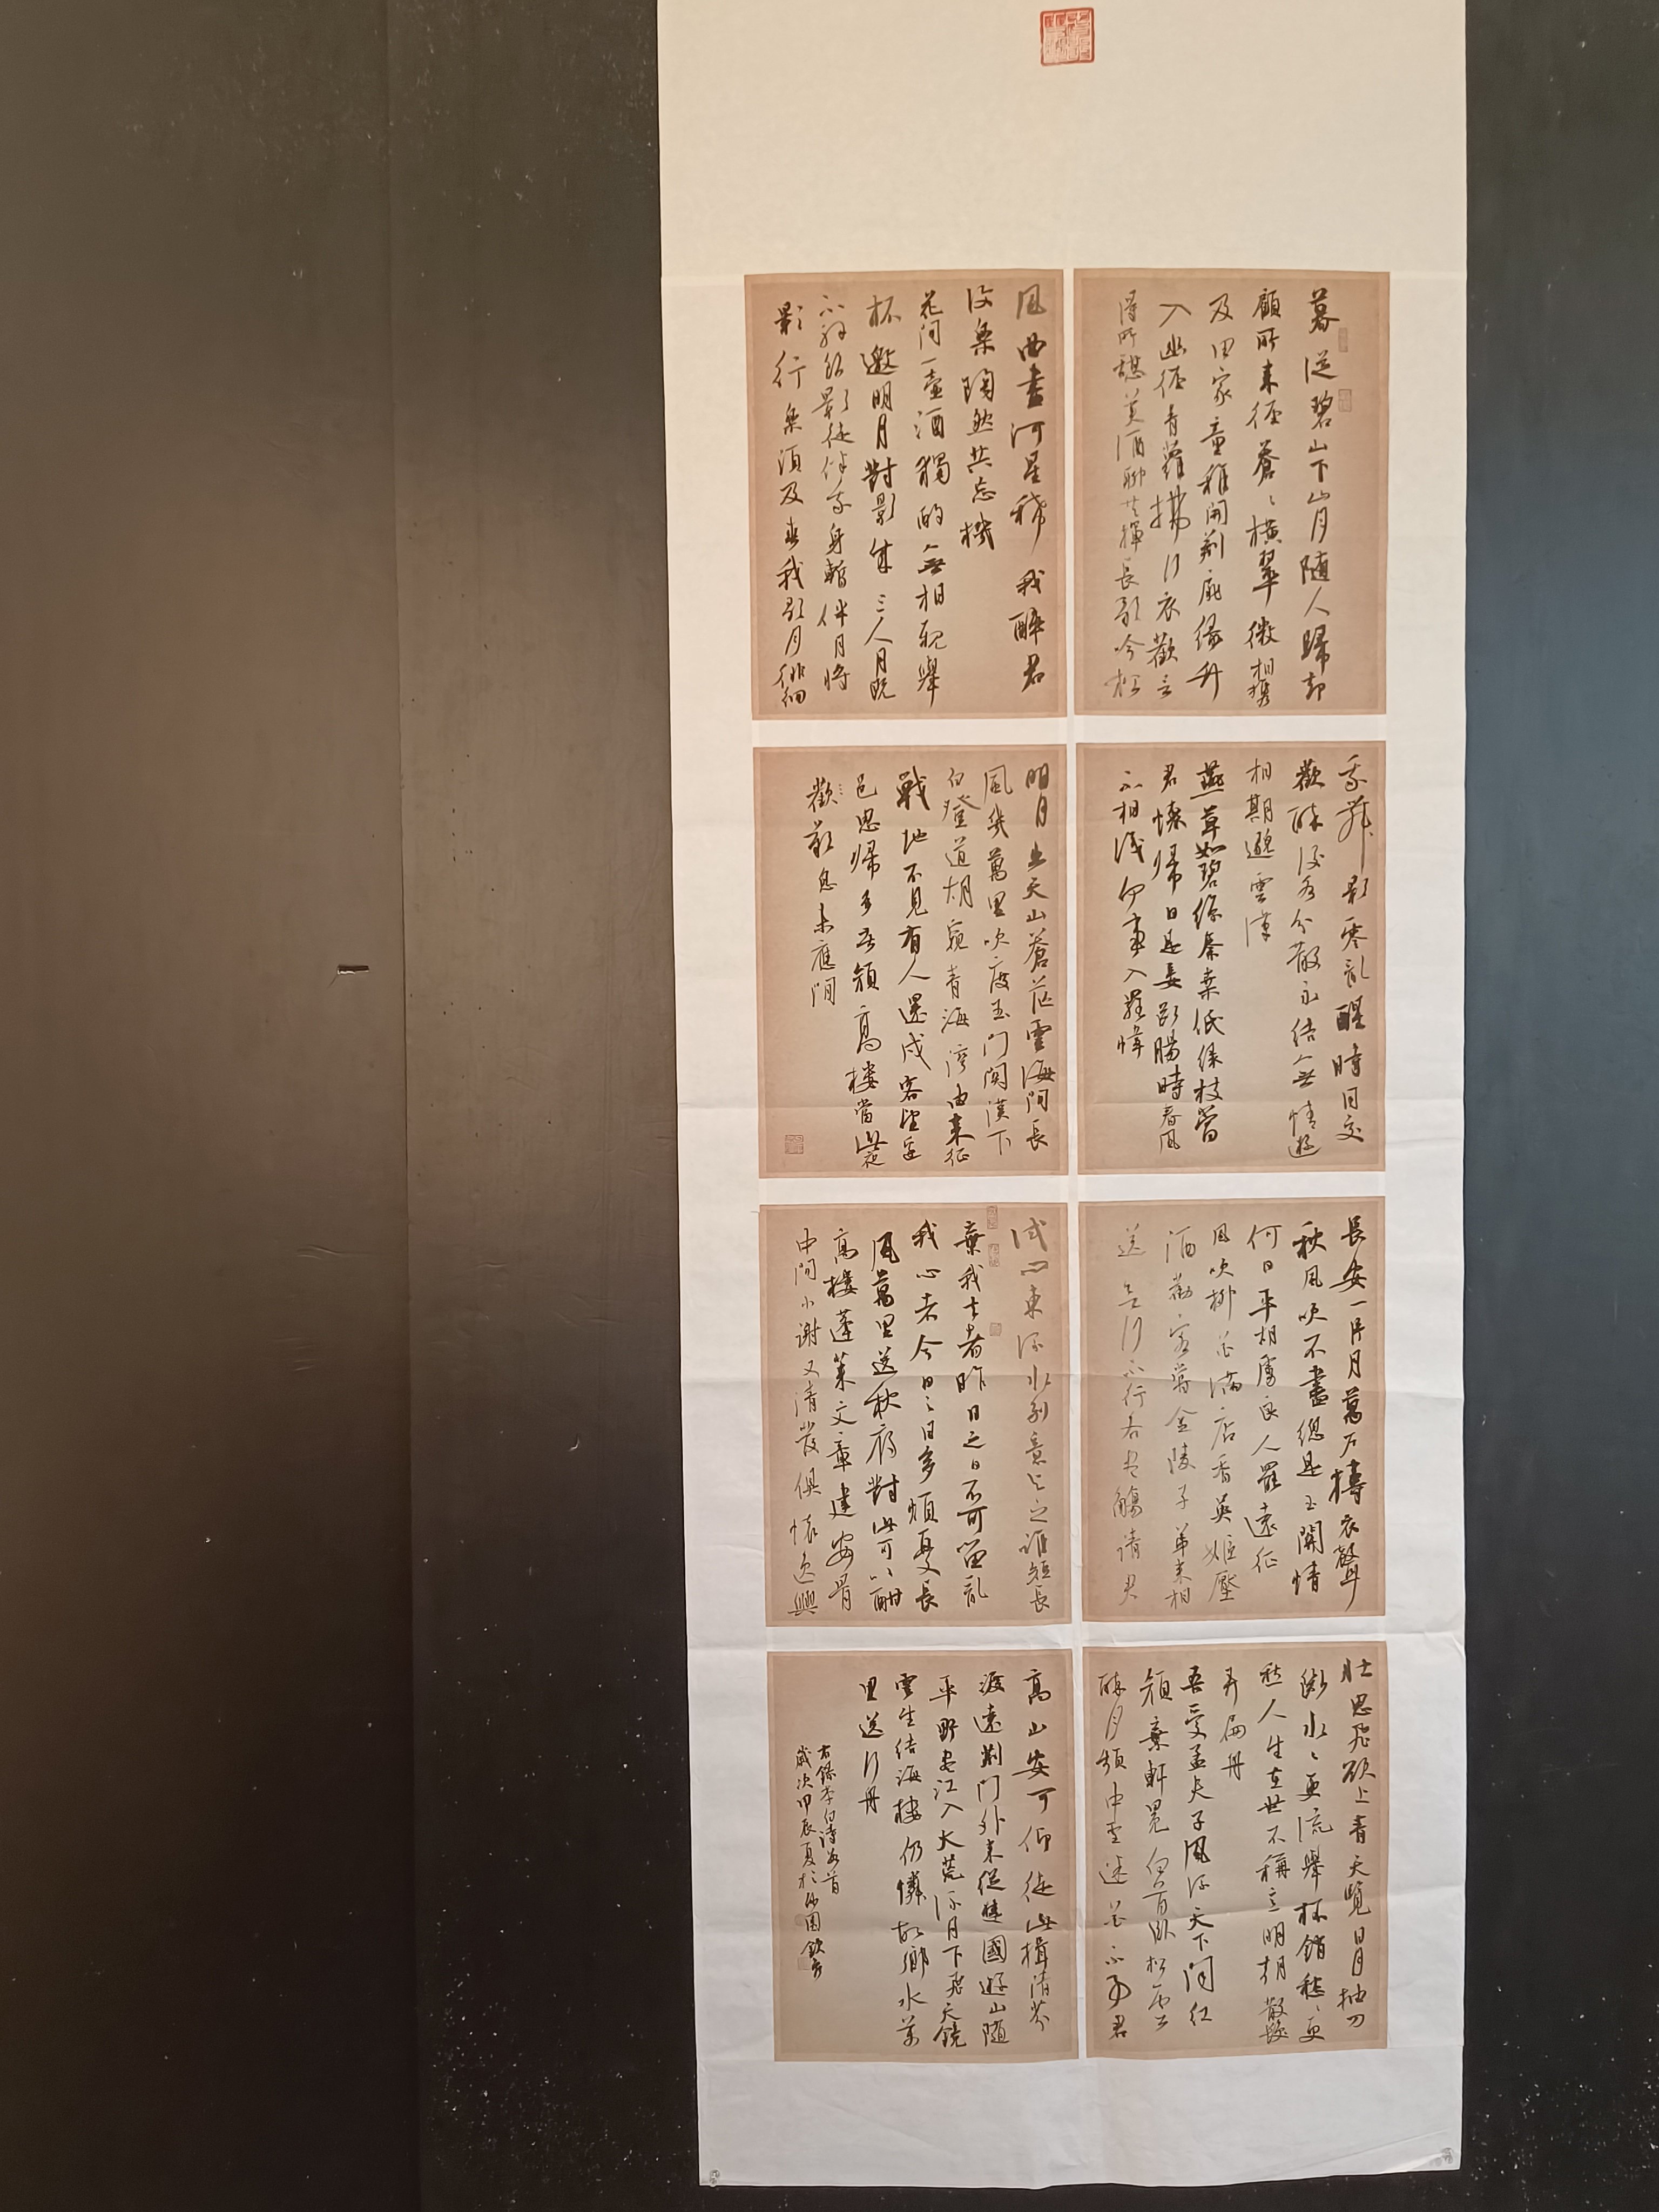 暮從碧山下山月隨人歸却
顧所来徑蒼〻橫翠微相攜
及田家童稚開荊扉綠竹
入幽徑青蘿拂行衣歡言
得所憩美酒聊共揮長歌吟松
風曲盡河星稀我醉君
復樂陶然共忘機
花間一壺酒獨酌無相親舉
杯邀明月對影成三人月既
不解飲影徒伴我身暫伴月將
影行樂須及春我歌月徘徊
我舞影零亂醒時同交
歡醉後各分散永結無情遊
相期邈雲漢
燕草如碧絲秦桑低綠枝當
君懷歸日是妾斷腸時春風
不相識何事入羅幃
明月出天山蒼茫雲海間長
風幾萬里吹度玉門關漢下
白登道胡窺青海灣由来征
戰地不見有人還戍客望邊
邑思歸多苦顏高樓當此夜
歎歎息未應閒
長安一片月萬戶擣衣聲
秋風吹不盡總是玉關情
何日平胡虜良人罷遠征
風吹柳花滿店香吳姬壓
酒勸客嘗金陵子弟来相
送欲行不行各盡觴請君
試問東流水別意與之誰短長
棄我去者昨日之日不可留亂
我心者今日〻日多煩憂長
風萬里送秋雁對此可以酣
高樓蓬萊文章建安骨
中間小謝又清發俱懷逸興
壯思飛欲上青天覽日月抽刀
斷水〻更流舉杯銷愁〻更
愁人生在世不稱意明朝散髮
弄扁舟
吾愛孟夫子風流天下聞紅
顏棄軒冕白首臥松雲
醉月頻中聖迷花不事君
高山安可仰徒此揖清芬
渡遠荊門外来從楚國遊山隨
平野盡江入大荒流月下飛天鏡
雲生結海樓仍憐故鄉水萬
里送行舟
右錄李白詩數首
歲次甲辰夏於